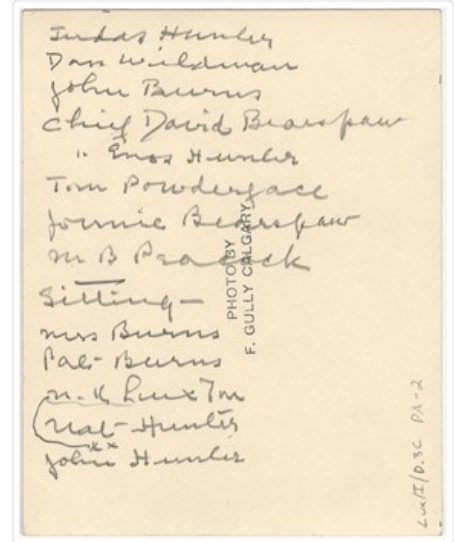 Judas Hunter
Dan Wildman
John Burns
Chief David Bearspaw
" Enos Hunter
Tom Powderface
Jonnie Bearspaw
M B Peacock
Sitting —
Mrs Burns
Pat Burns
N. K Luxton
Nat Hunter
John Hunter
PHOTO BY
F. GULLY CALGARY
Lux/I/D.3C PA-2